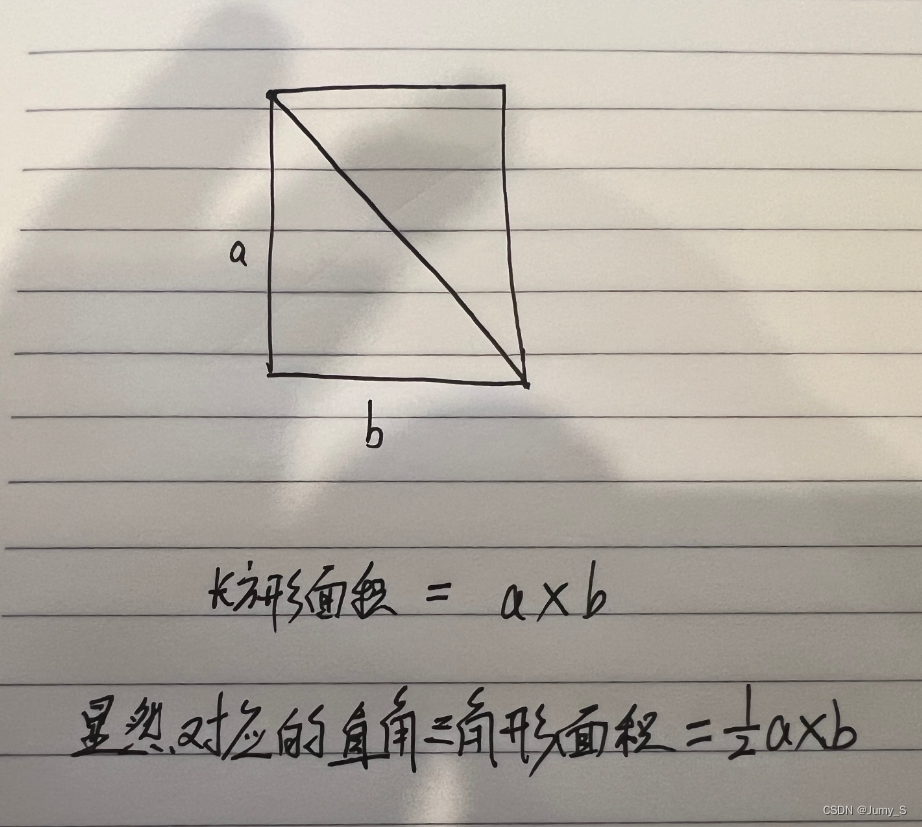 a
b
长方形面积 = a×b
显然对应的直角三角形面积 = 1/2 a×b
CSDN @Jumy_S